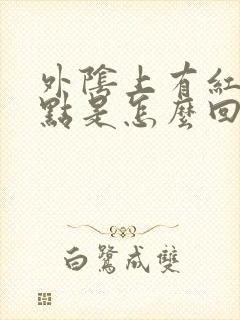 外陰上有紅
點是怎麼回
白鷺成雙